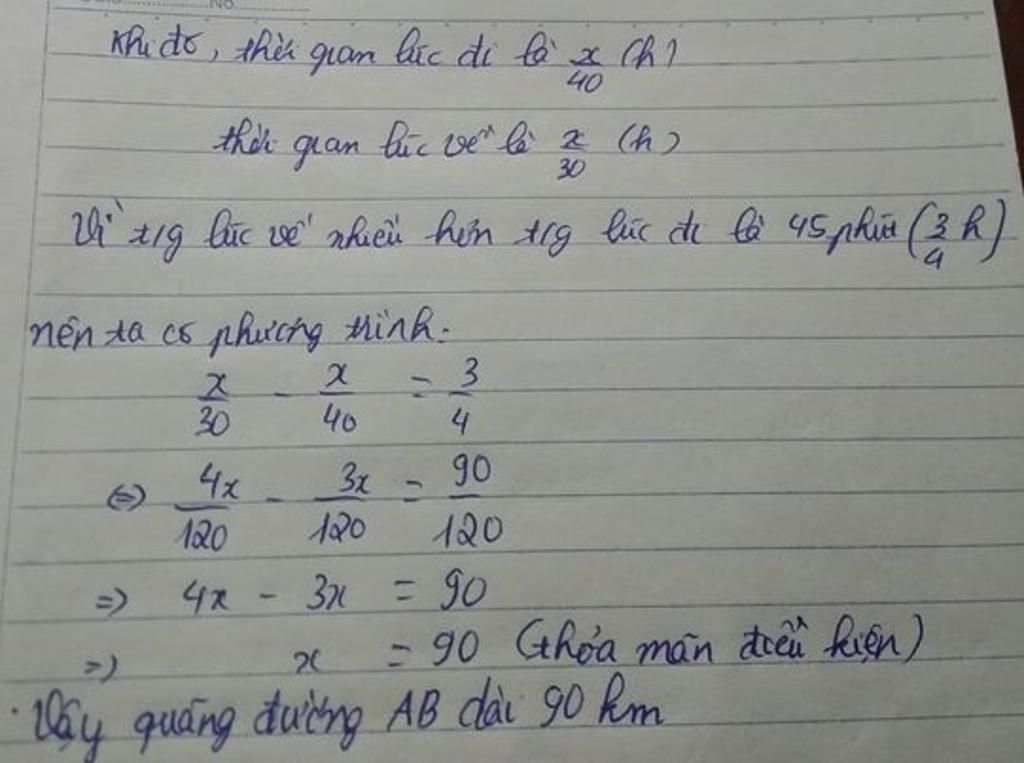 No.
Khi đó, thời gian lúc đi là x/40 (h)
thời gian lúc về là x/30 (h)
Vì t/g lúc về nhiều hơn t/g lúc đi là 45 phút (3/4 h)
nên ta có phương trình.
x/30 - x/40 = 3/4
⇔ 4x/120 - 3x/120 = 90/120
⇒ 4x - 3x = 90
⇒ x = 90 (thỏa mãn điều kiện)
. Vậy quãng đường AB dài 90 km